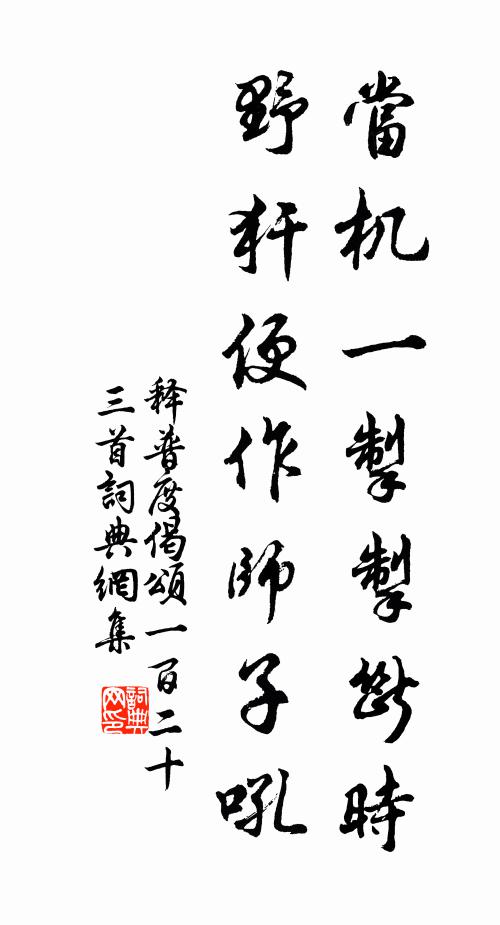 當机一掣掣斷時
野犴便作師子吼
释普度偈頌一百二十
三首詞典網集
詞典
网印